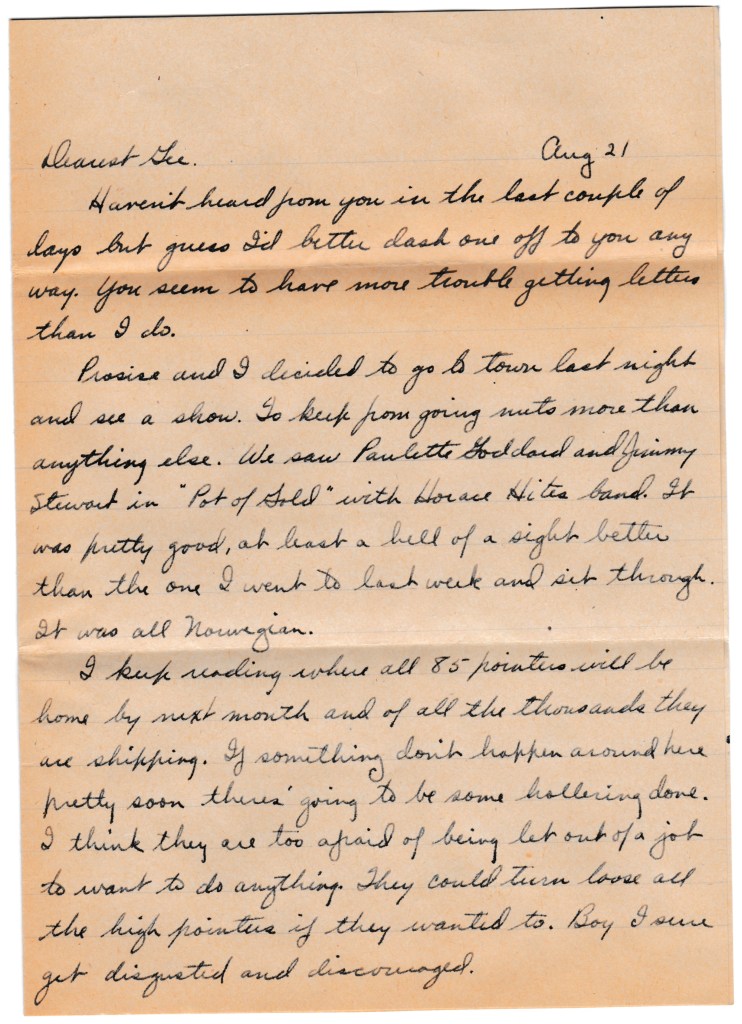 Dearest Gee. Aug 21
Haven't heard from you in the last couple of
days but guess I'd better dash one off to you any
way. You seem to have more trouble getting letters
than I do.
Prosise and I decided to go to town last night
and see a show. To keep from going nuts more than
anything else. We saw Paulette Goddard and Jimmy
Stewart in "Pot of Gold" with Horace Hites band. It
was pretty good, at least a hell of a sight better
than the one I went to last week and sit through.
It was all Norwegian.
I keep reading where all 85 pointers will be
home by next month and of all the thousands they
are shipping. If something don't happen around here
pretty soon theres' going to be some hollering done.
I think they are too afraid of being let out of a job
to want to do anything. They could turn loose all
the high pointers if they wanted to. Boy I sure
get disgusted and discouraged.